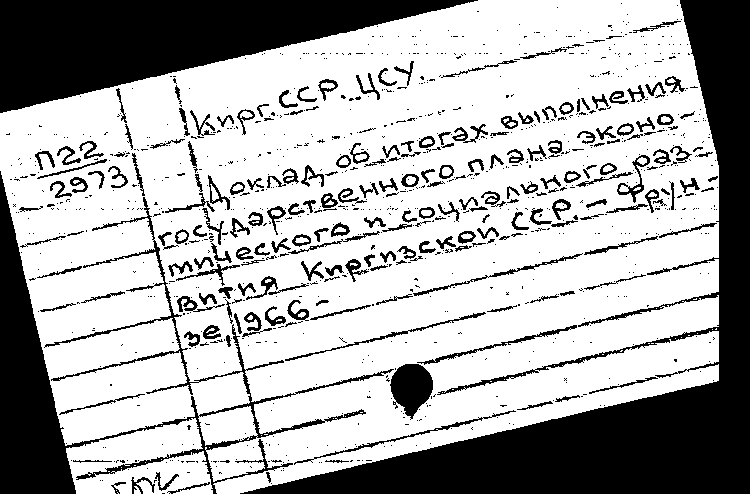 Кирг. ССР. ЦСУ.
П22
2973
Доклад об итогах выполнения
государственного плана эконо-
мического и социального раз-
вития Киргизской ССР. – Фрун-
зе, 1966 –